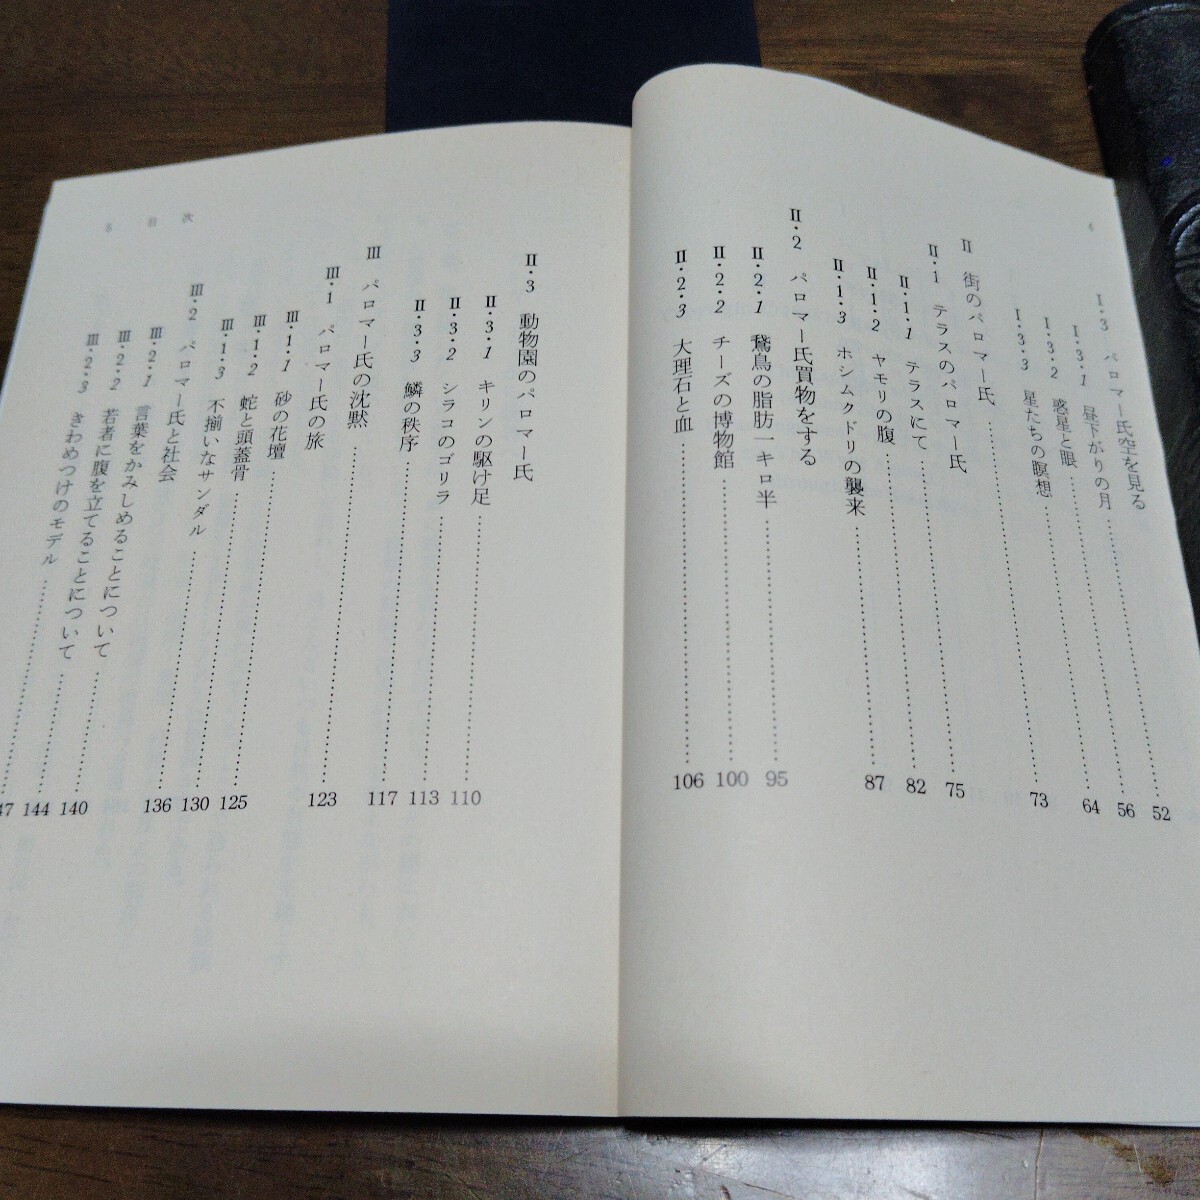 4
Ⅰ・3 パロマー氏空を見る
Ⅰ・3・1 昼下がりの月……52
Ⅰ・3・2 惑星と眼……56
Ⅰ・3・3 星たちの瞑想……64
Ⅱ 街のパロマー氏……73
Ⅱ・1 テラスのパロマー氏
Ⅱ・1・1 テラスにて……75
Ⅱ・1・2 ヤモリの腹……82
Ⅱ・1・3 ホシムクドリの襲来……87
Ⅱ・2 パロマー氏買物をする
Ⅱ・2・1 鵞鳥の脂肪一キロ半……95
Ⅱ・2・2 チーズの博物館……100
Ⅱ・2・3 大理石と血……106
5 目次
Ⅱ・3 動物園のパロマー氏
Ⅱ・3・1 キリンの駆け足……110
Ⅱ・3・2 シラコのゴリラ……113
Ⅱ・3・3 鱗の秩序……117
Ⅲ パロマー氏の沈黙……123
Ⅲ・1 パロマー氏の旅
Ⅲ・1・1 砂の花壇……125
Ⅲ・1・2 蛇と頭蓋骨……130
Ⅲ・1・3 不揃いなサンダル……136
Ⅲ・2 パロマー氏と社会
Ⅲ・2・1 言葉をかみしめることについて……140
Ⅲ・2・2 若者に腹を立てることについて……144
Ⅲ・2・3 きわめつけのモデル……47